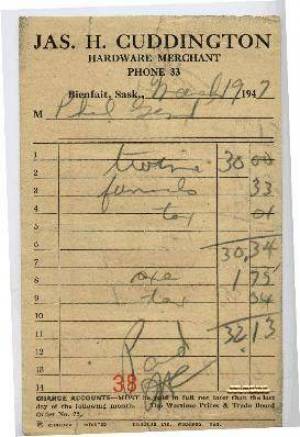 JAS. H. CUDDINGTON
HARDWARE MERCHANT
PHONE 33
Bienfait, Sask., March 19 1947
M Phil
1 30 00
2 33
3 tax 01
4
5
6 30,34
7
8 axe 1 75
9 tax 04
10
11 32,13
12 Paid
13
14 38
CHARGE ACCOUNTS—MUST be paid in full not later than the last
day of the following month. The Wartime Prices & Trade Board
Order No. 75.